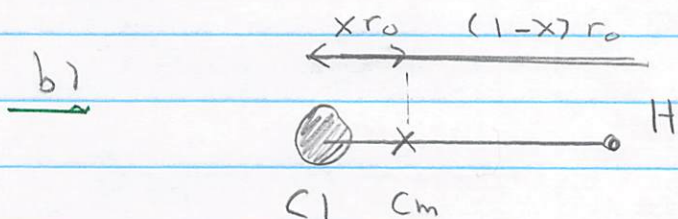 x r₀ (1-x) r₀
b)
H
Cl Cm